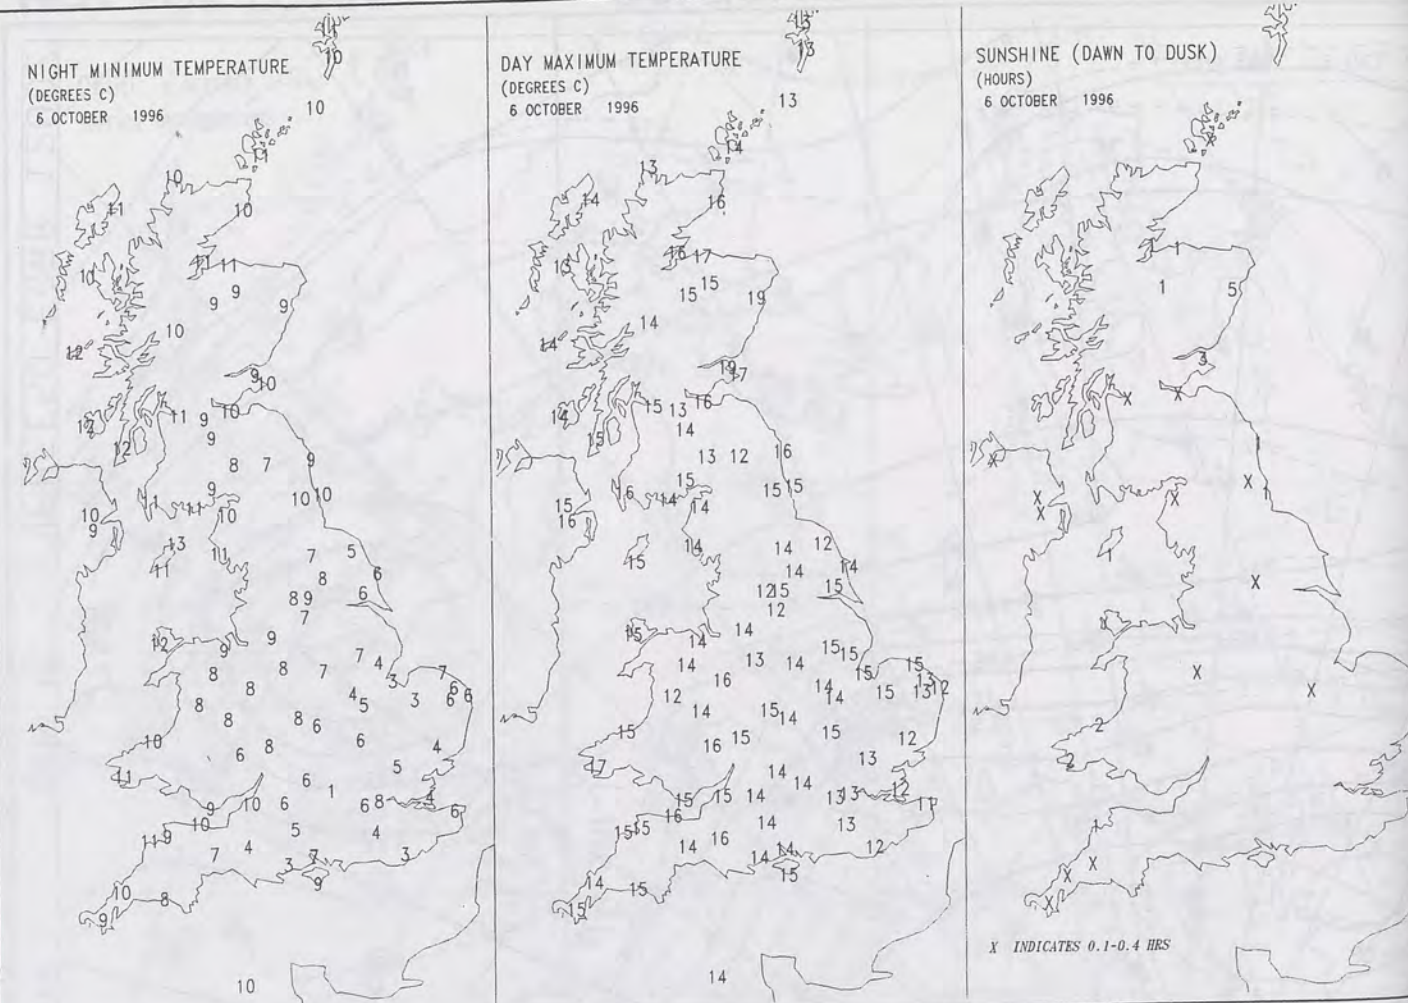 NIGHT MINIMUM TEMPERATURE
(DEGREES C)
6 OCTOBER 1996
10
10
11
10
11
10
11
11
10
9
9
9
10
12
9
10
10
11
9
12
9
12
8
7
9
9
10
10
11
11
10
10
9
13
11
11
7
5
8
6
8
9
6
7
12
9
9
7
4
8
8
7
3
7
8
4
5
3
6
6
6
8
8
8
6
10
6
8
6
4
11
5
6
1
9
10
6
6
8
4
6
10
11
9
5
4
7
4
3
7
3
9
10
8
9
10
DAY MAXIMUM TEMPERATURE
(DEGREES C)
6 OCTOBER 1996
13
13
13
14
13
14
16
16
17
13
15
15
19
14
14
19
17
16
15
13
14
14
15
13
12
16
15
16
14
14
15
15
15
16
14
15
14
12
14
14
12
15
15
12
15
14
14
15
15
14
13
14
15
15
16
13
12
14
14
15
13
12
14
15
14
15
15
16
15
12
17
13
14
14
12
15
15
14
13
13
11
16
15
15
14
13
14
16
14
14
12
15
14
15
15
14
SUNSHINE (DAWN TO DUSK)
(HOURS)
6 OCTOBER 1996
X
1
1
1
5
3
X
X
X
X
X
X
X
1
1
X
1
X
X
2
2
1
X
X
X
X INDICATES 0.1-0.4 HRS